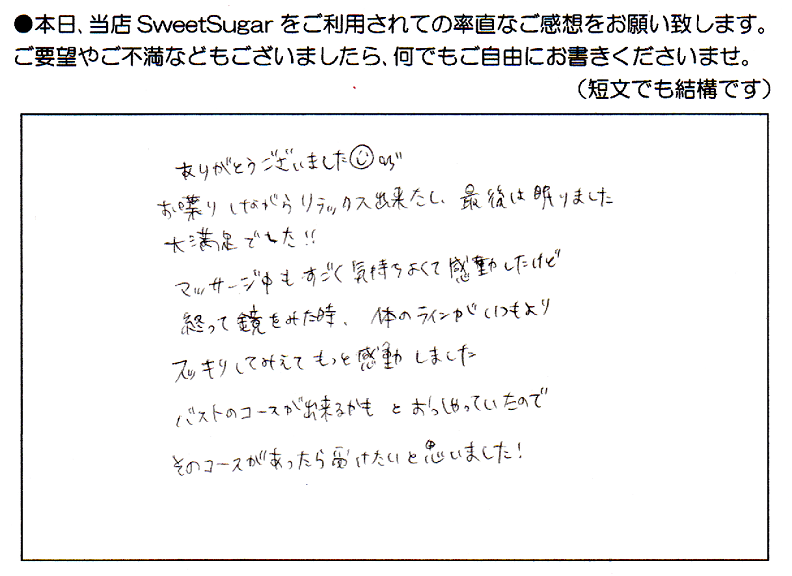 ●本日、当店SweetSugarをご利用されての率直なご感想をお願い致します。
ご要望やご不満などもございましたら、何でもご自由にお書きくださいませ。
(短文でも結構です)
ありがとうございました
お喋りしながらリラックス出来たし、最後は眠りました
大満足でした!!
マッサージ中もすごく気持ちよくて感動したけど
終って鏡をみた時、体のラインがいつもより
スッキリしてみえてもっと感動しました
バストのコースが出来るかもとおっしゃっていたので
そのコースがあったら受けたいと思いました!